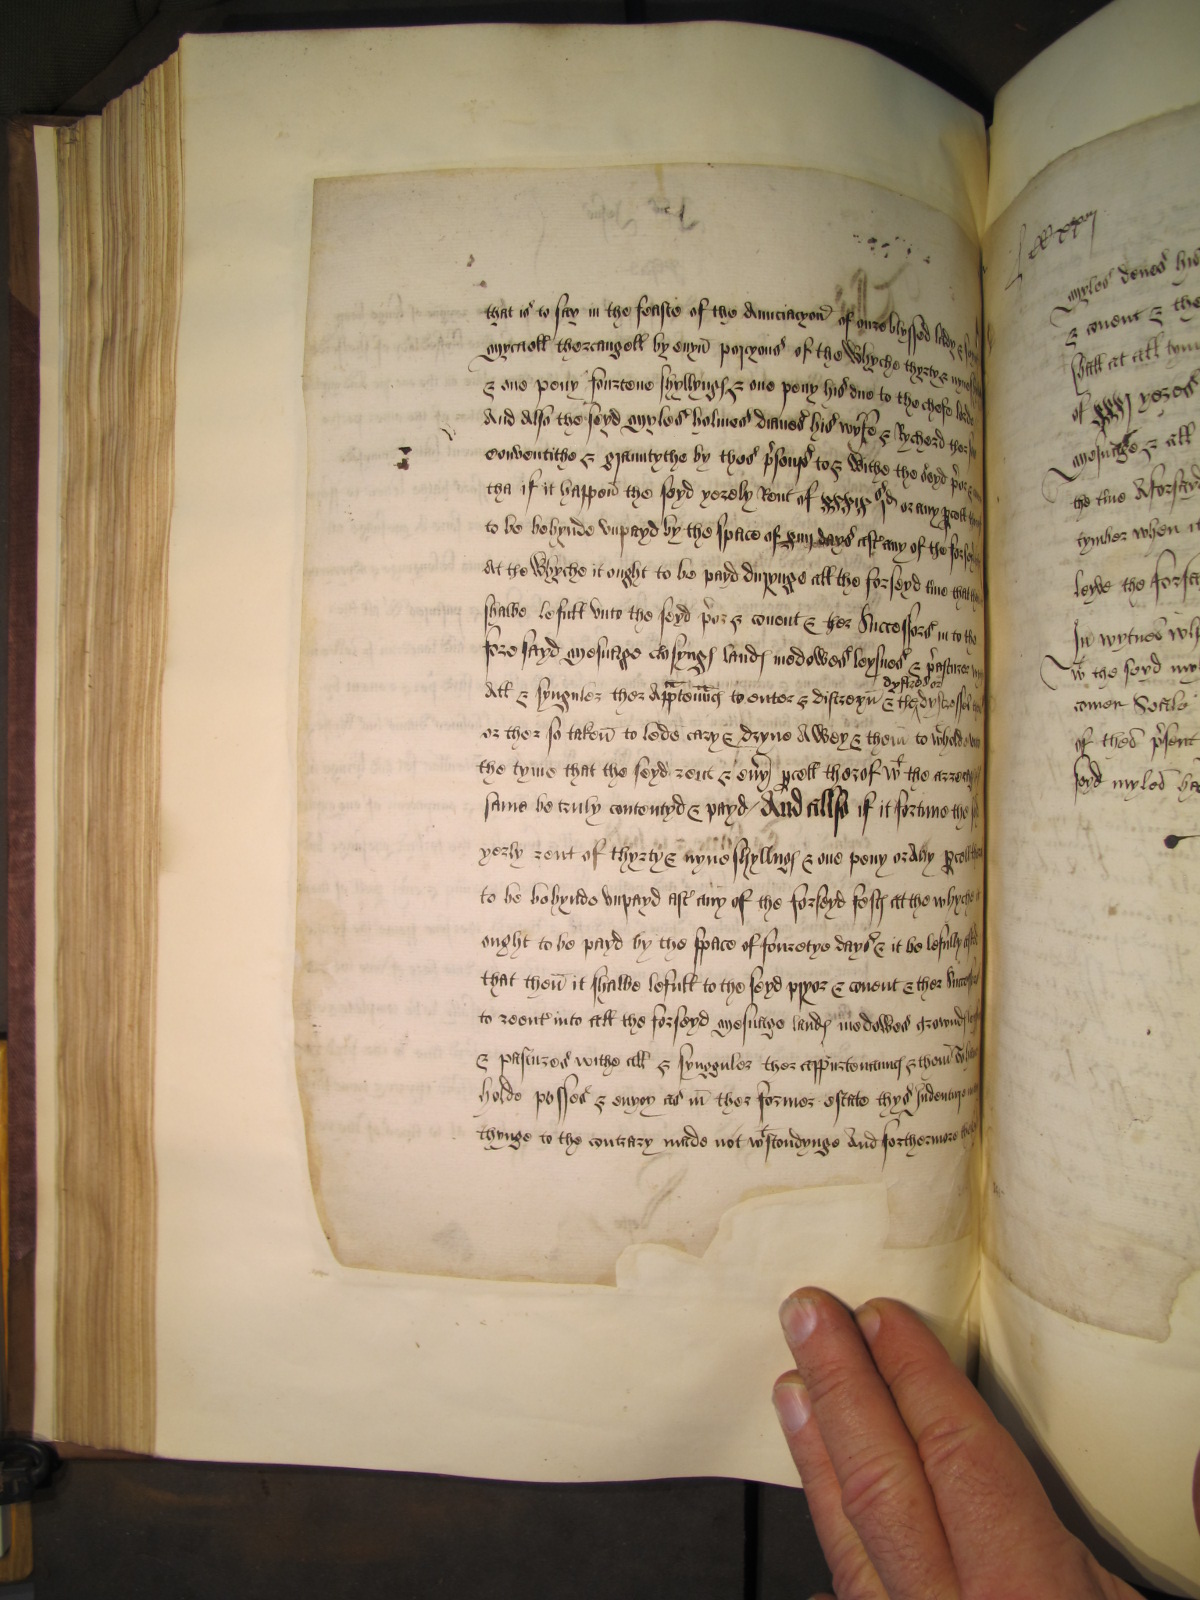 that is to say in the feaste of the Annuciacyon of oure blyssed lady &
Mycaell tharcangell by evyn porcyons of the Whyche thyrty & nyne
& one peny fourtene shyllyngs & one peny his due to the chefe lorde
And Also the seyd Myles holmes dianes his wyfe & Rycherd ther
Coventithe & grauntythe by thes psents to & withe the seyd por &
tha if it happen the seyd yerely Rent of xxxix s jd or any pcell
to be behynde unpayd by the space of days aft any of the forseyd
At the Whyche it ought to be payd durynge all the forseyd time that
shalbe lefull unto the seyd por & covent & ther Successors in to the
fore sayd mesuage closyngs lands medowes leysues & pastures
dystres or
All & synguler ther Apptennces to enter & distreyn & the dystresses
or ther so taken to lede cary & dryve Awey & them to whold
the tyme that the seyd rent & evry pcell therof wt the arreragys
same be truly contentyd & payd / And allso if it fortune the
yerly rent of thyrty & nyne shyllngs & one peny or Any pcell
to be behynde unpayd aft any of the forseyd fests at the whyche
ought to be payd by the space of fouretye days & it be lefully
that then it shalbe lefull to the seyd pryor & covent & ther Successors
to reent into all the forseyd mesuage lands medowes grownds
& pastures withe all & syngguler ther appurtenauncs & them
holde posses & enyoy as in ther former estate thys Indenture
thynge to the contrary made not wtstondynge And forthermore
Myles his
& covent & the
shall at all tym
of xxxj yeres
mesuage & all
the time Aforseyd
tymber when
leyve the forsa
In wytnes wh
wt the seyd my
comen Seale
of thes psent
seyd myles